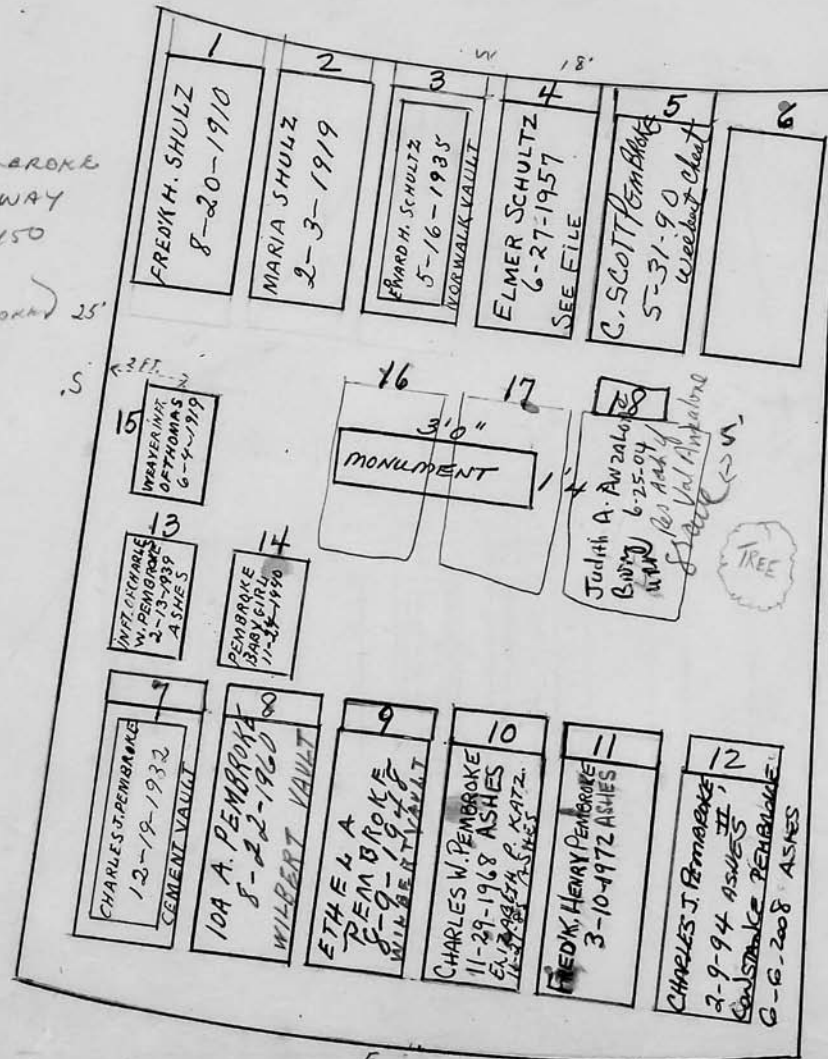 W
18'
BROKE
WAY
150
25'
S
1
FRED'K H. SHULZ
8-20-1910
2
MARIA SHULZ
2-3-1919
3
EDWARD H. SCHULTZ
5-16-1935
NORWALK VAULT
4
ELMER SCHULTZ
6-27-1957
SEE FILE
5
C. SCOTT Pembroke
5-31-90
6
2 FT.
15
WEAVER INFT.
OF THOMAS
6-4-1919
16
17
3'0"
MONUMENT
1'4
18
Judith A. Anzalone
6-25-04
Val Anzalone
5'
TREE
13
INFT. OF CHARLE
W. PEMBROKE
2-13-1939
ASHES
14
PEMBROKE
BABY GIRL
11-24-1940
7
CHARLES J. PEMBROKE
12-19-1932
CEMENT VAULT
8
IDA A. PEMBROKE
8-22-1960
WILBERT VAULT
9
ETHEL A
PEMBROKE
8-9-1948
WILBERT VAULT
10
CHARLES W. PEMBROKE
11-29-1968 ASHES
ELIZABETH P. KATZ
ASHES
11
FRED'K. HENRY PEMBROKE
3-10-1972 ASHES
12
CHARLES J. PEMBROKE II,
2-9-94 ASHES
CONSTANCE PEMBROKE
6-6-2008 ASHES
E